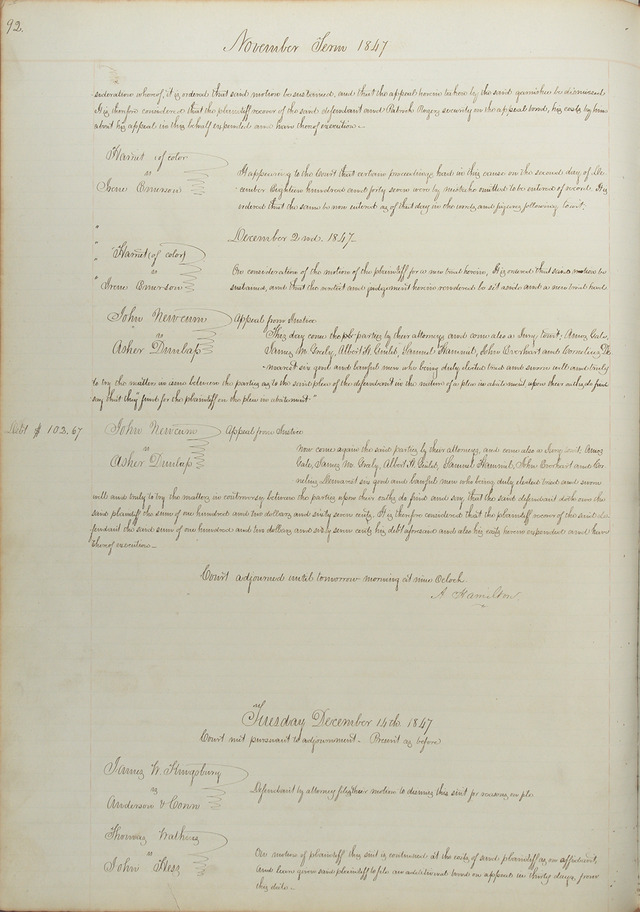 92.
November Term 1847
sideration whereof, it is ordered that said motion be sustained, and that the appeal herein taken by the said garnishee be dismissed
It is therefore considered that the plaintiff recover of the said defendant and Patrick Rogers security in the appeal bond, his costs by him
about his appeal in this behalf expended and have thereof execution.—
Harriet of color
vs
Irene Emerson
It appearing to the Court that certain proceedings had in this cause on the second day of De-
cember Eighteen hundred and forty seven were by mistake omitted to be entered of record. It is
ordered that the same be now entered as of that day in the words and figures following to wit.
December 2nd. 1847—
" Harriet (of color)
" vs
" Irene Emerson
On consideration of the motion of the plaintiff for a new trial herein, It is ordered that said motion be
sustained, and that the verdict and judgement herein rendered be set aside and a new trial had
John Newcum
vs
Asher Dunlap
Appeal from Justice
This day come the parties by their attorneys and come also a Jury to wit; Amos
James M. Grely, Albert H. Guild, Samuel Hammel, John Everhart and Cornelius De-
marest six good and lawful men who being duly elected tried and sworn well and truly
to try the matters in issue between the parties as to the said plea of the defendant in the nature of a plea in abatement upon their oaths do find
say that they "find for the plaintiff on the plea in abatement"
Debt $ 102.67
John Newcum
vs
Asher Dunlap
Appeal from Justice
Now come again the said parties by their attorneys, and come also a Jury to wit; Amos
James M. Grely, Albert H. Guild, Samuel Hammel, John Everhart and Cor-
nelius Demarest six good and lawful men who being duly elected tried and sworn
well and truly to try the matters in controversy between the parties upon their oaths do find and say that the said defendant doth owe the
said plaintiff the sum of one hundred and two dollars and sixty seven cents. It is therefore considered that the plaintiff recover of the said de-
fendant the said sum of one hundred and two dollars and sixty seven cents his debt aforesaid and also his costs herein expended and have
thereof execution—
Court adjourned until tomorrow morning at nine Oclock
A. Hamilton
Tuesday December 14th. 1847
Court met pursuant to adjournment— Present as before
James W. Kingsbury
vs
Anderson & Conn
Defendant by attorney files their motion to dismiss this suit for reasons on file
Thomas Watkins
vs
John
On motion of plaintiff this suit is continued at the costs of said plaintiff as on affidavit,
and leave given said plaintiff to file an additional bond on appeal in thirty days, from
this date—